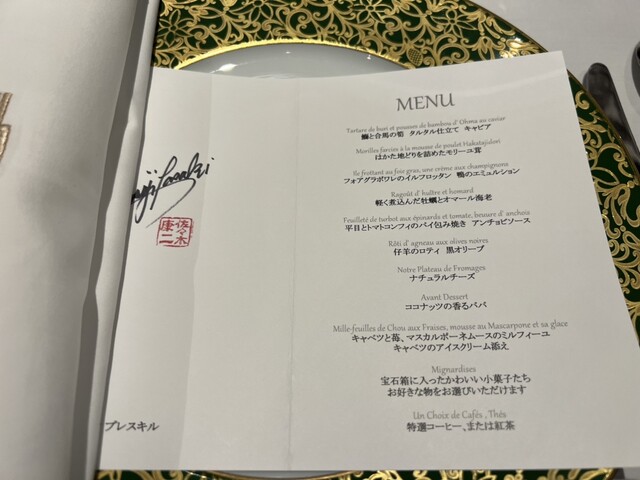 MENU
Tartare de buri et pousses de bambou d' Ohma au caviar
鰤と合馬の筍 タルタル仕立て キャビア
Morilles farcies à la mousse de poulet Hakatajidori
はかた地どりを詰めたモリーユ茸
Ile flottant au foie gras, une crème aux champignons
フォアグラポワレのイルフロッタン 鴨のエミュルション
Ragoût d' huître et homard
軽く煮込んだ牡蠣とオマール海老
Feuilleté de turbot aux épinards et tomate, beurre d' anchois
平目とトマトコンフィのパイ包み焼き アンチョビソース
Rôti d' agneau aux olives noires
仔羊のロティ 黒オリーブ
Notre Plateau de Fromages
ナチュラルチーズ
Avant Dessert
ココナッツの香るババ
Mille-feuilles de Chou aux Fraises, mousse au Mascarpone et sa glace
キャベツと苺、マスカルポーネムースのミルフィーユ
キャベツのアイスクリーム添え
Mignardises
宝石箱に入ったかわいい小菓子たち
お好きな物をお選びいただけます
Un Choix de Cafés , Thés
特選コーヒー、または紅茶
佐々木
康二
プレスキル